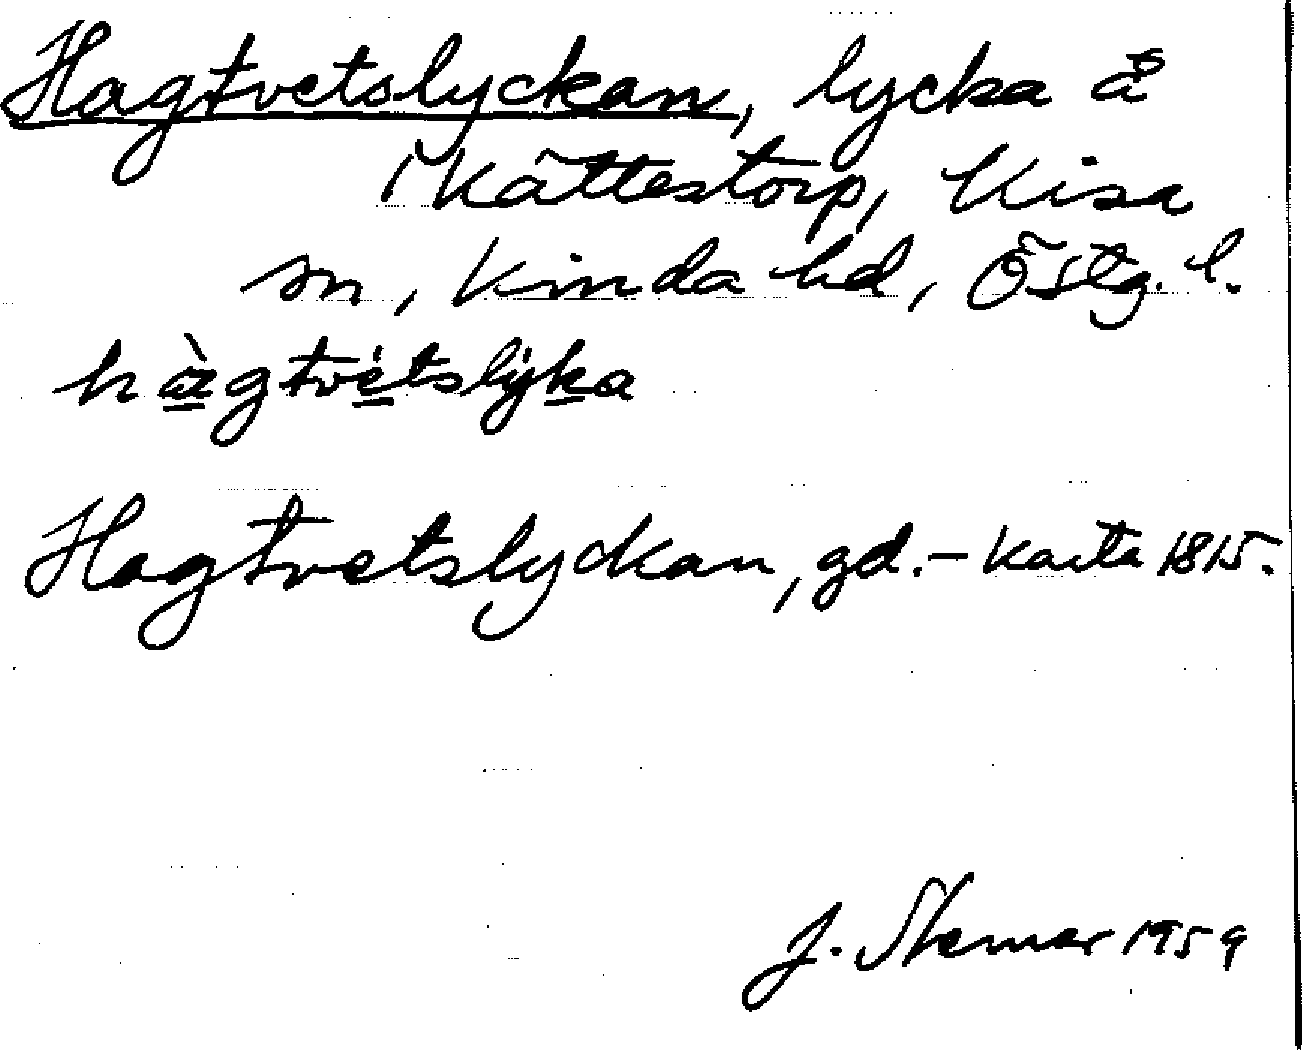 Hagtvetslyckan, lycka å
i Kättestorp, Kisa
sn, Kinda hd, Östg. l.
hàgtvétslýka
Hagtvetslyckan, gd. – Karta 1815.
J. 1959